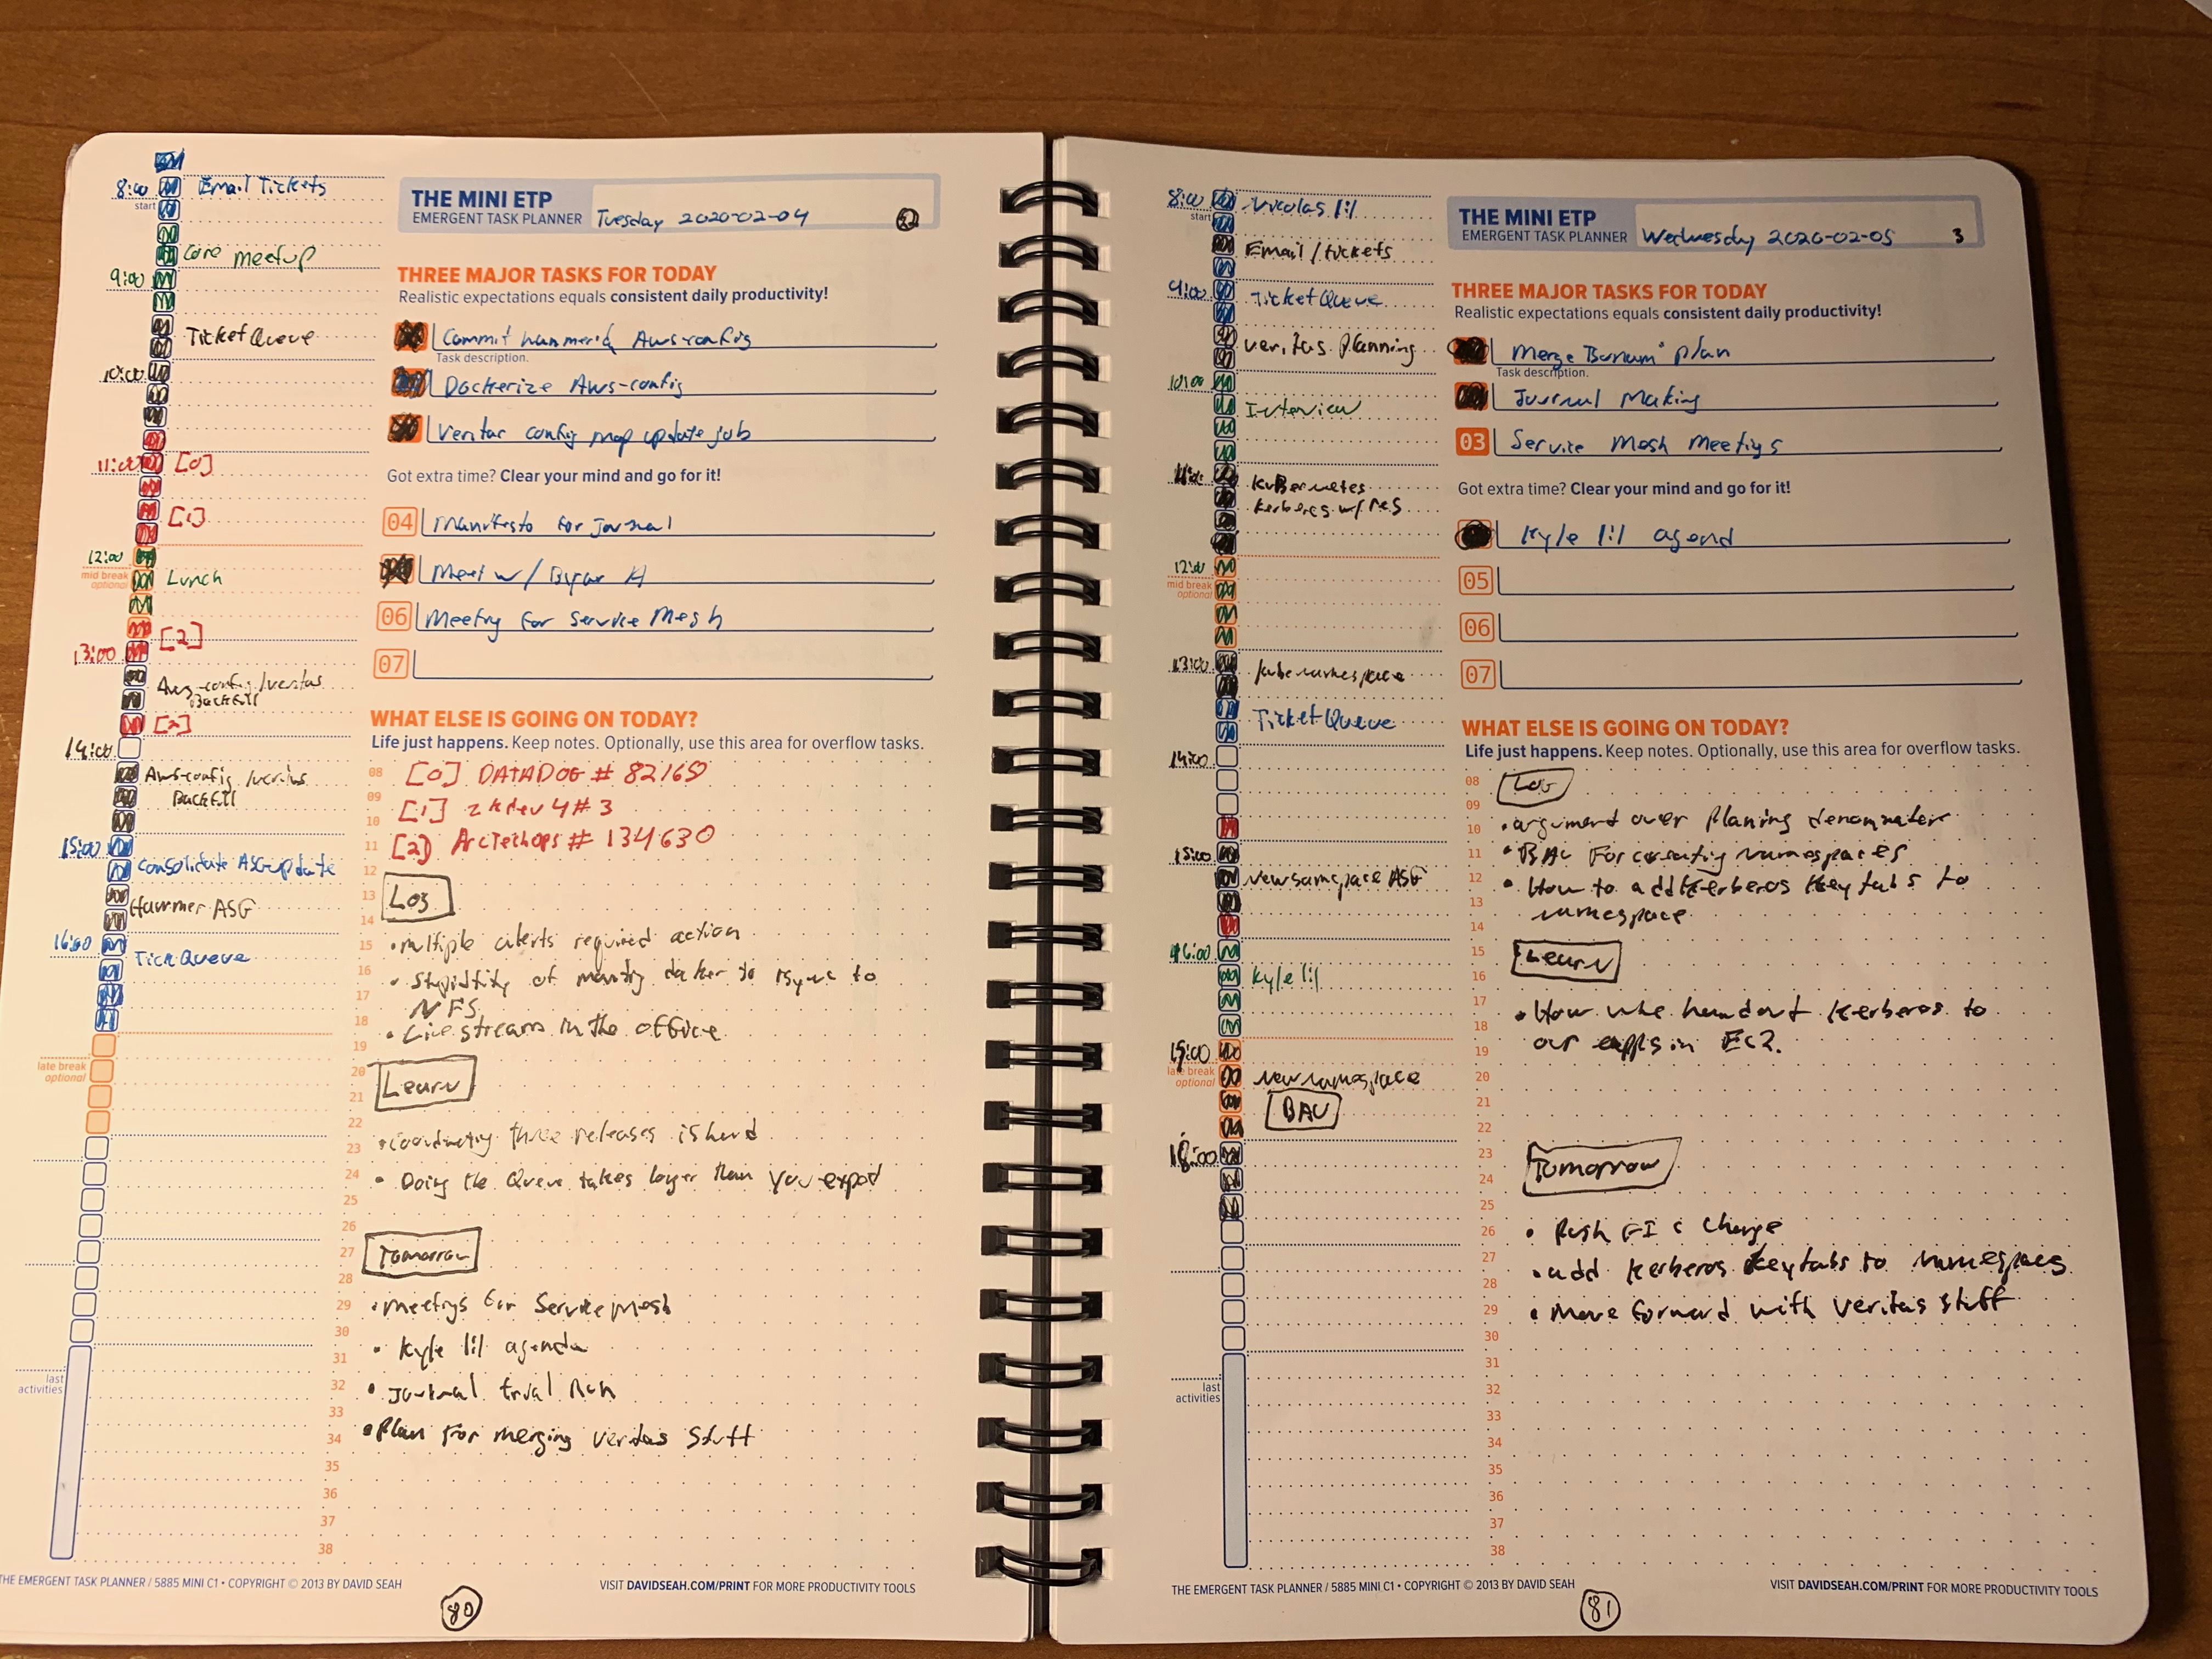 8:00 Email Tickets
start
Core meetup
9:00
Ticket Queue
10:00
11:00 [0]
[1]
12:00
mid break
optional
Lunch
[2]
13:00
Aws-config/veritas
Backfill
[2]
14:00
Aws-config/veritas
Backfill
15:00
Consolidate ASG update
Hammer ASG
16:00
Tick Queue
late break
optional
last
activities
THE MINI ETP
EMERGENT TASK PLANNER Tuesday 2020-02-04 2
THREE MAJOR TASKS FOR TODAY
Realistic expectations equals consistent daily productivity!
Commit Aws-config
Task description.
Dockerize Aws-config
config map update job
Got extra time? Clear your mind and go for it!
04 Manifesto for Journal
Meet w/
06 Meeting for Service Mesh
07
WHAT ELSE IS GOING ON TODAY?
Life just happens. Keep notes. Optionally, use this area for overflow tasks.
08 [0] DATADOG # 82165
09
10 [1] zkdev4#3
11 [2] ArcTechops # 134630
12
13 Log
14
15 • multiple alerts required action
16 • Stupidity of docker to rsync to
17 NFS
18 • Live streams in the office
19
20 Learn
21
22
23 • Coordinating three releases is hard
24 • Doing the Queue takes longer than you expect
25
26
27 Tomorrow
28
29 • meetings for Service mesh
30
31 • Kyle 1:1 agenda
32 • Journal trial Run
33
34 • Plan for merging veritas stuff
35
36
37
38
THE EMERGENT TASK PLANNER / 5885 MINI C1 • COPYRIGHT © 2013 BY DAVID SEAH
VISIT DAVIDSEAH.COM/PRINT FOR MORE PRODUCTIVITY TOOLS
80
8:00 Nicolas 1:1
start
Email/tickets
9:00 Ticket Queue
veritas Planning
10:00
Interview
11:00 Kubernetes
Kerberos w/
12:00
mid break
optional
13:00 kube namespace
Ticket Queue
14:00
15:00
New namespace ASG
16:00
Kyle 1:1
late break
optional
new namespace
BAU
18:00
last
activities
THE MINI ETP
EMERGENT TASK PLANNER Wednesday 2020-02-05 3
THREE MAJOR TASKS FOR TODAY
Realistic expectations equals consistent daily productivity!
Merge plan
Task description.
Journal Making
03 Service Mesh Meetings
Got extra time? Clear your mind and go for it!
Kyle 1:1 agend
05
06
07
WHAT ELSE IS GOING ON TODAY?
Life just happens. Keep notes. Optionally, use this area for overflow tasks.
08 Log
09
10 • argument over Planing
11 • BAU For creating namespaces
12 • How to add Kerberos Keytabs to
13 namespace
14
15 Learn
16
17 • How handout Kerberos to
18
19 our apps in EC2.
20
21
22
23 Tomorrow
24
25
26 • Push Change
27 • add Kerberos Keytabs to namespaces
28
29 • Move forward with Veritas stuff
30
31
32
33
34
35
36
37
38
THE EMERGENT TASK PLANNER / 5885 MINI C1 • COPYRIGHT © 2013 BY DAVID SEAH
VISIT DAVIDSEAH.COM/PRINT FOR MORE PRODUCTIVITY TOOLS
81